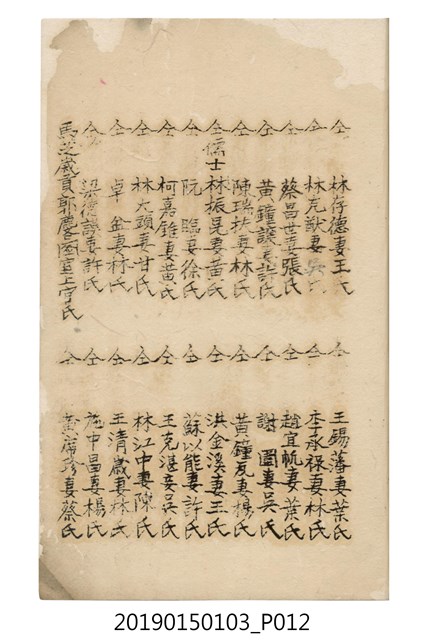 仝 林存德妻王氏
仝 林尨猷妻吳氏
仝 蔡昌世妻張氏
仝 黃鐘讓妻許氏
仝 陳瑞扶妻林氏
仝 儒士林振晃妻黃氏
仝 阮 臨妻徐氏
仝 柯嘉錐妻黃氏
仝 林大頭妻甘氏
仝 卓 金妻林氏
仝 梁德謨妻許氏
馬芝歲貢郭慶 室上官氏
仝 王錫藩妻葉氏
仝 李承祿妻林氏
仝 趙宜帆妻葉氏
仝 謝 圖妻吳氏
仝 黃鐘友妻楊氏
仝 洪金溪妻王氏
仝 蘇以能妻許氏
仝 王克湛妾吳氏
仝 林江中妻陳氏
仝 王清歲妻林氏
仝 施中昌妻楊氏
仝 黃席珍妻蔡氏
20190150103_P012